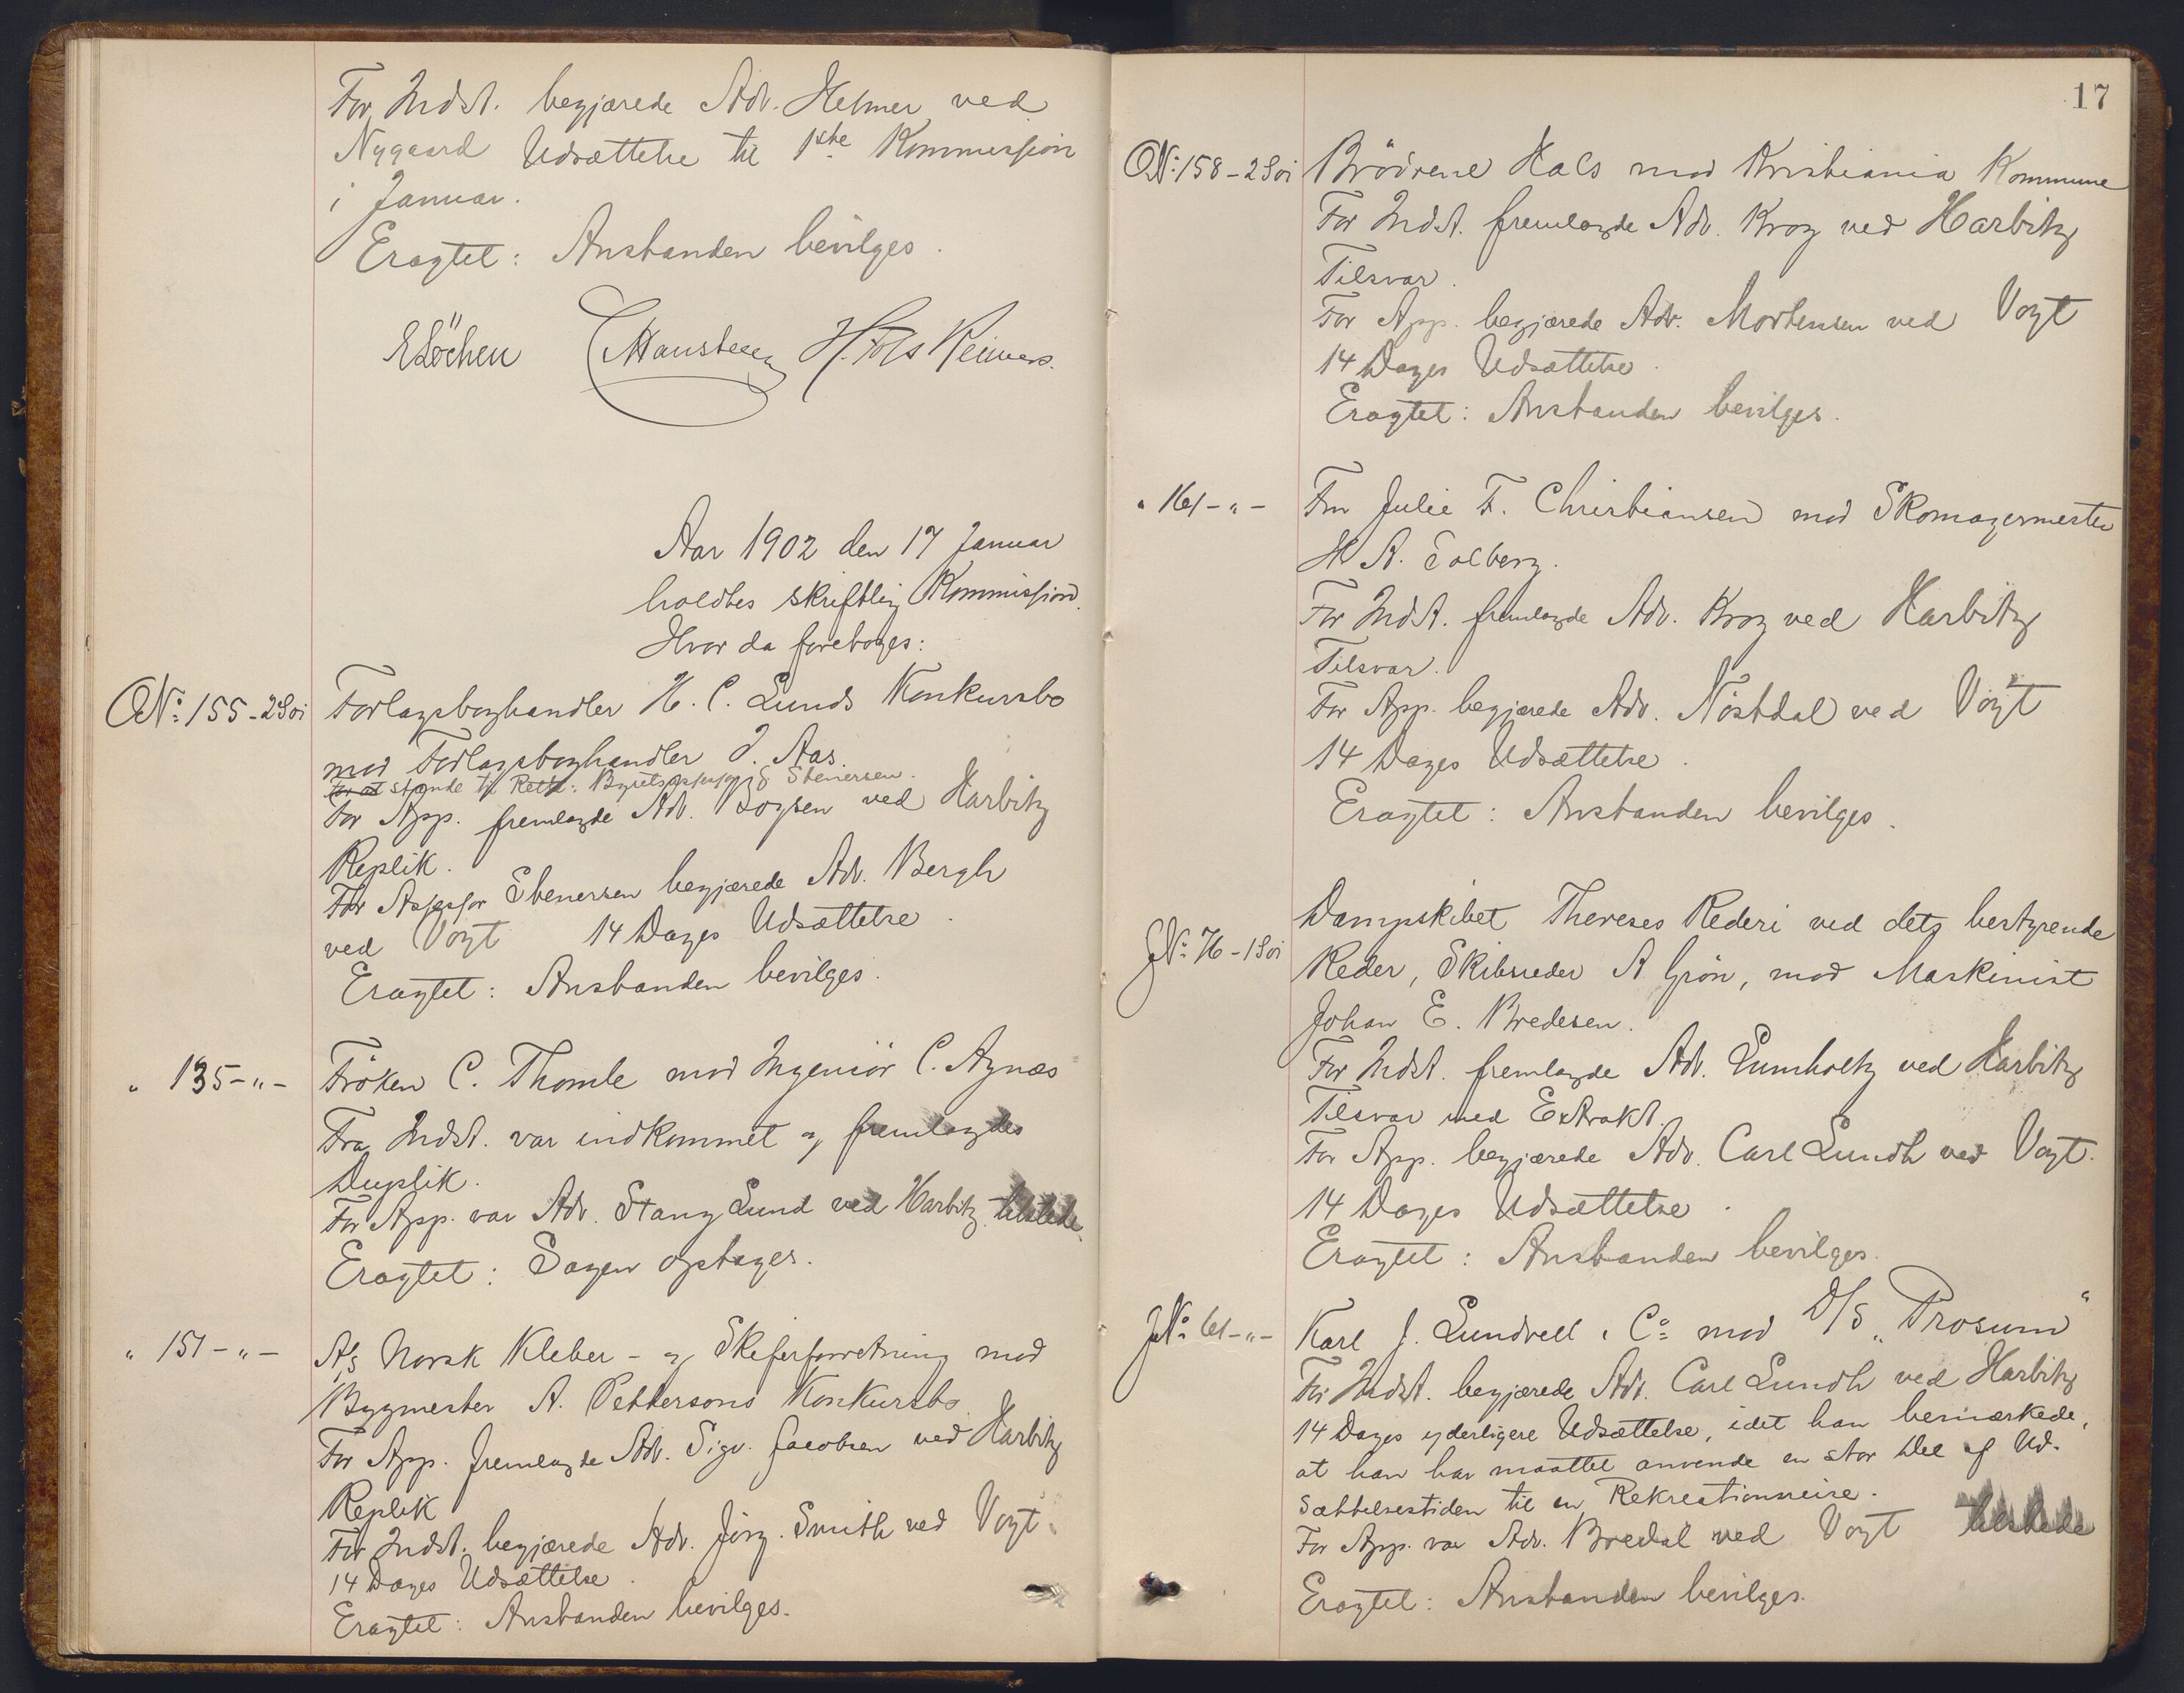 For Indst. begjærede Adv. Helmer ved
Nygaard Udsættelse til 1ste Kommission
i Januar.
Eragtet: Anstanden bevilges.
E Löchen H. Fols Reimers.
Aar 1902 den 17 Januar
holdtes skriftlig Kommission.
Hvor da foretoges:
No 155 - 2 Soi Forlagsboghandler H. C. Lunds Konkursbo
mod Forlagsboghandler J. Aas.
For at stande til Rette: Byretsassessor Stenersen.
For App. fremlagde Adv. ved Harbitz
Replik.
For Assessor Stenersen begjærede Adv. Bergh
ved Vogt 14 Dages Udsættelse.
Eragtet: Anstanden bevilges.
" 135 - " - Fröken C. Thomle mod Ingeniör C. Agnæs
Fra Indst. var indkommet og fremlagdes
Duplik.
For App. var Adv. Stang Lund ved Harbitz tilstede.
Eragtet: Sagen optages.
" 151 - " - A/S Norsk Kleber- og Skiferforretning mod
Bygmester A. Pettersons Konkursbo.
For App. fremlagde Adv. Sigv. Jacobsen ved Harbitz
Replik
For Indst. begjærede Adv. Jörg. Smith ved Vogt.
14 Dages Udsættelse.
Eragtet: Anstanden bevilges.
17
No 158 - 2 Soi Brödrene Hals mod Kristiania Kommune
For Indst. fremlagde Adv. Krog ved Harbitz
Tilsvar.
For App. begjærede Adv. Mortensen ved Vogt
14 Dages Udsættelse.
Eragtet: Anstanden bevilges.
" 161 - " - Fru Julie F. Christiansen mod Skomagermester
H A. Solberg.
For Indst. fremlagde Adv. Krog ved Harbitz
Tilsvar.
For App. begjærede Adv. Nöstdal ved Vogt
14 Dages Udsættelse.
Eragtet: Anstanden bevilges.
Dampskibet Thereses Rederi ved dets bestyrende
No 76 - 1 Soi Reder, Skibsreder A Grön, mod Maskinist
Johan E. Bredesen.
For Indst. fremlagde Adv. Lumholtz ved Harbitz
Tilsvar med Extrakt.
For App. begjærede Adv. Carl Lundh ved Vogt.
14 Dages Udsættelse.
Eragtet: Anstanden bevilges.
No 61 - " - Karl J. Lundvell & Co mod D/S "Prosum"
For Indst. begjærede Adv. Carl Lundh ved Harbitz
14 Dages yderligere Udsættelse, idet han bemærkede,
at han har maattet anvende en stor Del af Ud-
sættelsestiden til en Rekreationsreise.
For App. var Adv. Bredal ved Vogt tilstede
Eragtet: Anstanden bevilges.